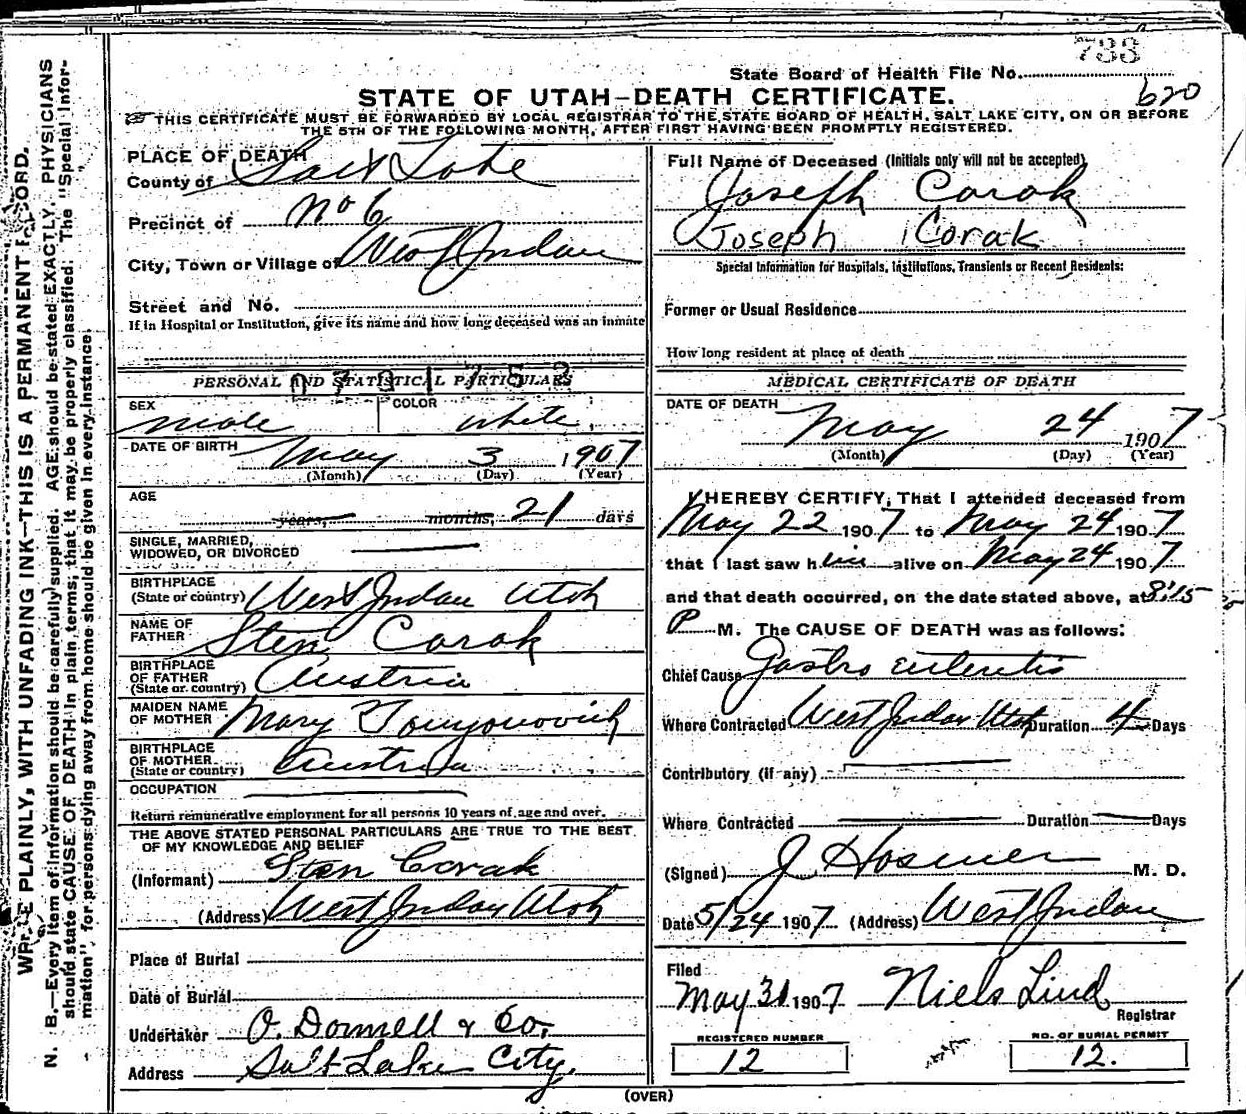 733
State Board of Health File No.
620
STATE OF UTAH-DEATH CERTIFICATE.
THIS CERTIFICATE MUST BE FORWARDED BY LOCAL REGISTRAR TO THE STATE BOARD OF HEALTH, SALT LAKE CITY, ON OR BEFORE
THE 5TH OF THE FOLLOWING MONTH, AFTER FIRST HAVING BEEN PROMPTLY REGISTERED.
PLACE OF DEATH
County of Salt Lake
Precinct of No 6
City, Town or Village of West Jordan
Street and No.
If in Hospital or Institution, give its name and how long deceased was an inmate
PERSONAL AND STATISTICAL PARTICULARS
SEX male COLOR white
DATE OF BIRTH May 3 1907
(Month) (Day) (Year)
AGE
years, months, 21 days
SINGLE, MARRIED,
WIDOWED, OR DIVORCED
BIRTHPLACE
(State or country) West Jordan Utah
NAME OF
FATHER Sten Corak
BIRTHPLACE
OF FATHER
(State or country) Austria
MAIDEN NAME
OF MOTHER Mary
BIRTHPLACE
OF MOTHER
(State or country) Austria
OCCUPATION
Return remunerative employment for all persons 10 years of age and over.
THE ABOVE STATED PERSONAL PARTICULARS ARE TRUE TO THE BEST
OF MY KNOWLEDGE AND BELIEF
(Informant) Sten Corak
(Address) West Jordan Utah
Place of Burial
Date of Burial
Undertaker O. Donnell & Co.
Address Salt Lake City.
Full Name of Deceased (Initials only will not be accepted)
Joseph Corak
Joseph Corak
Special Information for Hospitals, Institutions, Transients or Recent Residents:
Former or Usual Residence
How long resident at place of death
MEDICAL CERTIFICATE OF DEATH
DATE OF DEATH
May 24 1907
(Month) (Day) (Year)
I HEREBY CERTIFY, That I attended deceased from
May 22 1907 to May 24 1907
that I last saw him alive on May 24 1907
and that death occurred, on the date stated above, at 8:15
P M. The CAUSE OF DEATH was as follows:
Chief Cause Gastro enteritis
Where Contracted West Jordan Utah Duration 4 Days
Contributory (if any)
Where Contracted Duration Days
(Signed) J Hosmer M. D.
Date 5/24 1907 (Address) West Jordan
Filed
May 31 1907 Niels Lind
Registrar
REGISTERED NUMBER
12
NO. OF BURIAL PERMIT
12.
(OVER)
WRITE PLAINLY, WITH UNFADING INK—THIS IS A PERMANENT RECORD.
N. B.—Every item of information should be carefully supplied. AGE should be stated EXACTLY. PHYSICIANS
should state CAUSE OF DEATH in plain terms, that it may be properly classified. The "Special Infor-
mation" for persons dying away from home should be given in every instance.